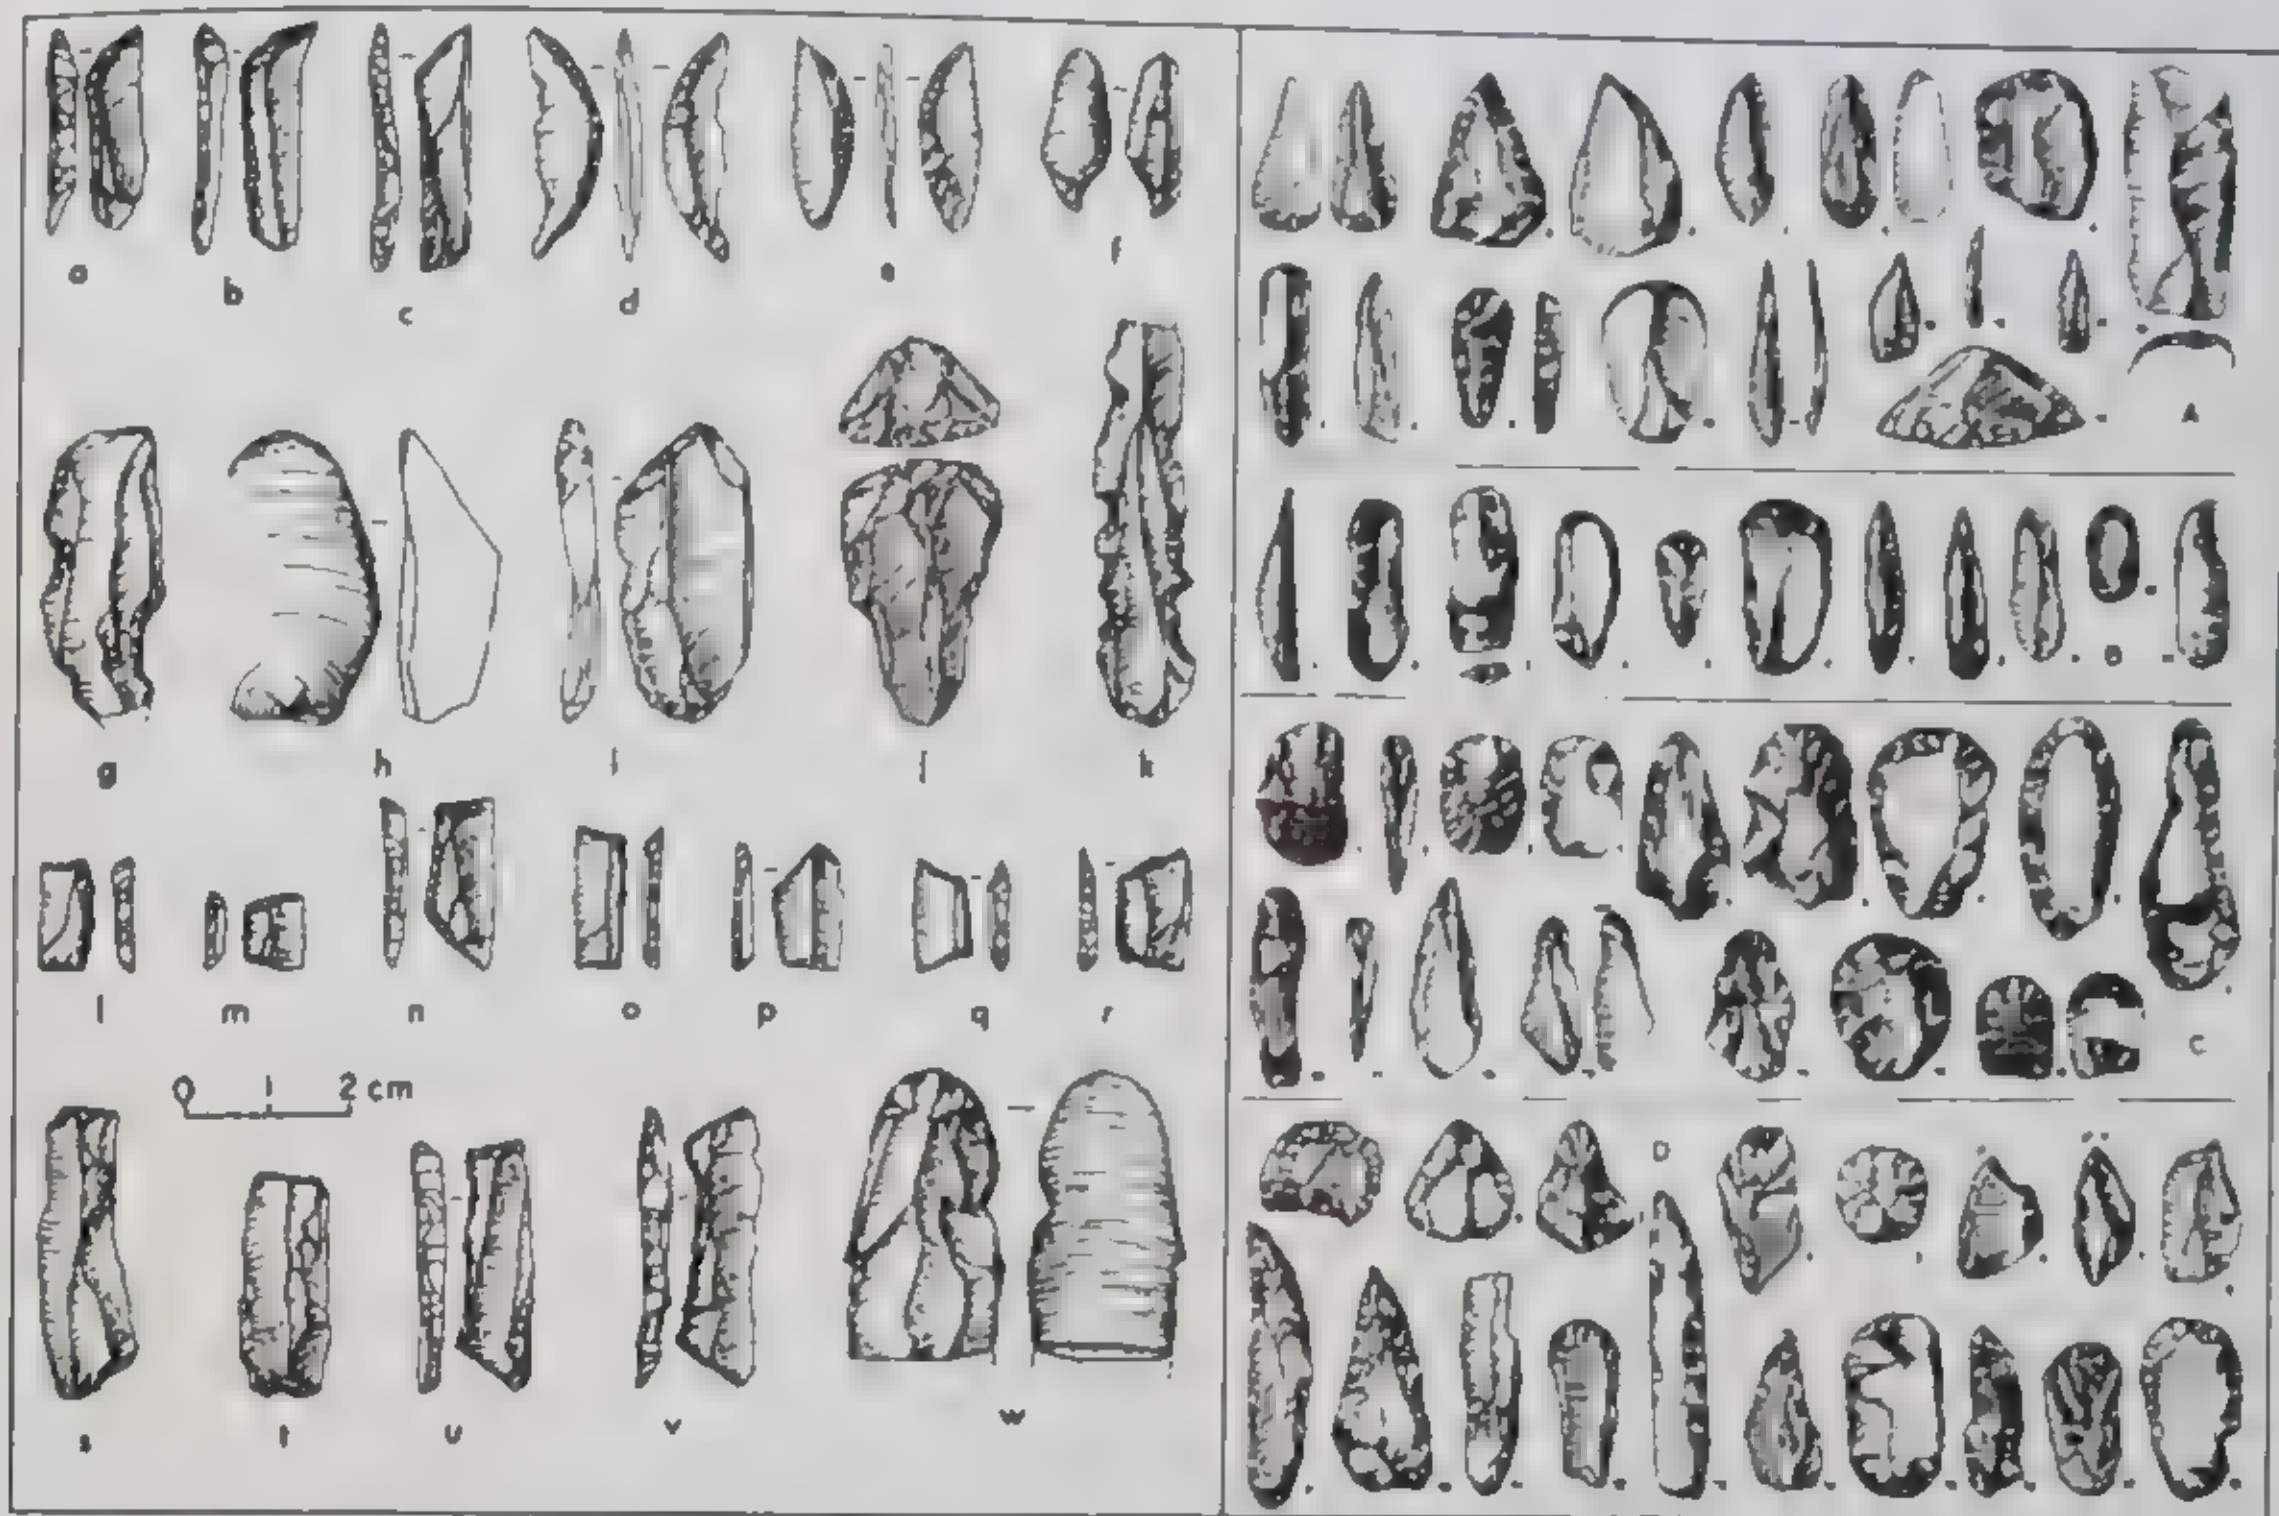 a b c d e f
g h i j k
l m n o p q r
0 1 2 cm
s t u v w
A
B
C
D